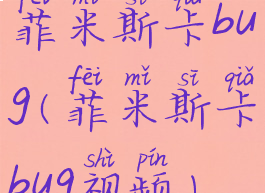 fēi mǐ sī qiǎ
菲米斯卡bu
fēi mǐ sī qiǎ
g(菲米斯卡
shì pín
bug视频)